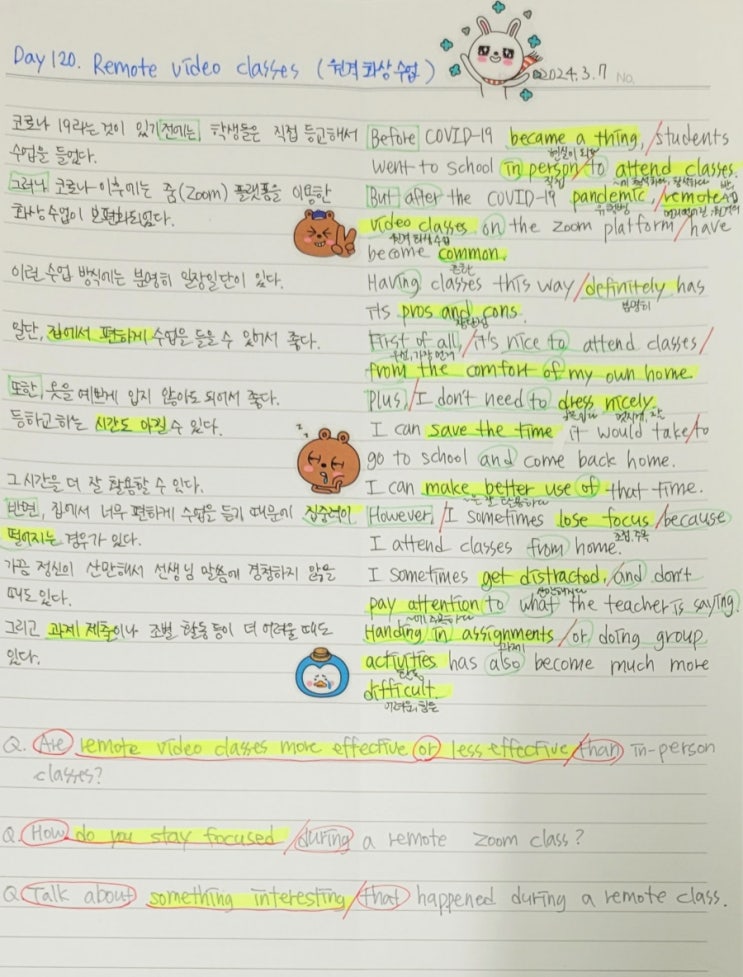 Day 120. Remote video classes (원격 화상 수업)
2024. 3. 7 No.
코로나 19라는 것이 있기 전에는, 학생들은 직접 등교해서
수업을 들었다.
그러나 코로나 이후에는 줌(Zoom) 플랫폼을 이용한
화상수업이 보편화되었다.
이런 수업 방식에는 분명히 일장일단이 있다.
일단, 집에서 편하게 수업을 들을 수 있어서 좋다.
또한, 옷을 예쁘게 입지 않아도 되어서 좋다.
등하교하는 시간도 아낄 수 있다.
그 시간을 더 잘 활용할 수 있다.
반면, 집에서 너무 편하게 수업을 듣기 때문에 집중력이
떨어지는 경우가 있다.
가끔 정신이 산만해서 선생님 말씀에 경청하지 않을
때도 있다.
그리고 과제 제출이나 조별 활동 등이 더 어려울 때도
있다.
Before COVID-19 became a thing, / students
현실이 되다
went to school in person / to attend classes.
직접 ~에 참석하다, 참석하다 반, 수업
But after the COVID-19 pandemic, / remote
유행병
video classes on the zoom platform / have
원격 화상 수업
become common.
흔한
Having classes this way / definitely has
분명히
its pros and cons.
장단점
First of all, / it's nice to attend classes /
우선, 가장 먼저
from the comfort of my own home.
Plus, / I don't need to dress nicely.
옷을 입다 멋지게, 잘
I can save the time it would take / to
go to school and come back home.
I can make better use of that time.
~을 잘 활용하다
However, / I sometimes lose focus / because
초점, 주목
I attend classes from home.
I sometimes get distracted, / and don't
산만해지다
pay attention to what the teacher is saying.
~에 주목하다
Handing in assignments / or doing group
과제
activities has also become much more
활동
difficult.
어려운, 힘든
Q. Are remote video classes more effective or less effective / than in-person
classes?
Q. How do you stay focused / during a remote zoom class?
Q. Talk about something interesting / that happened during a remote class.